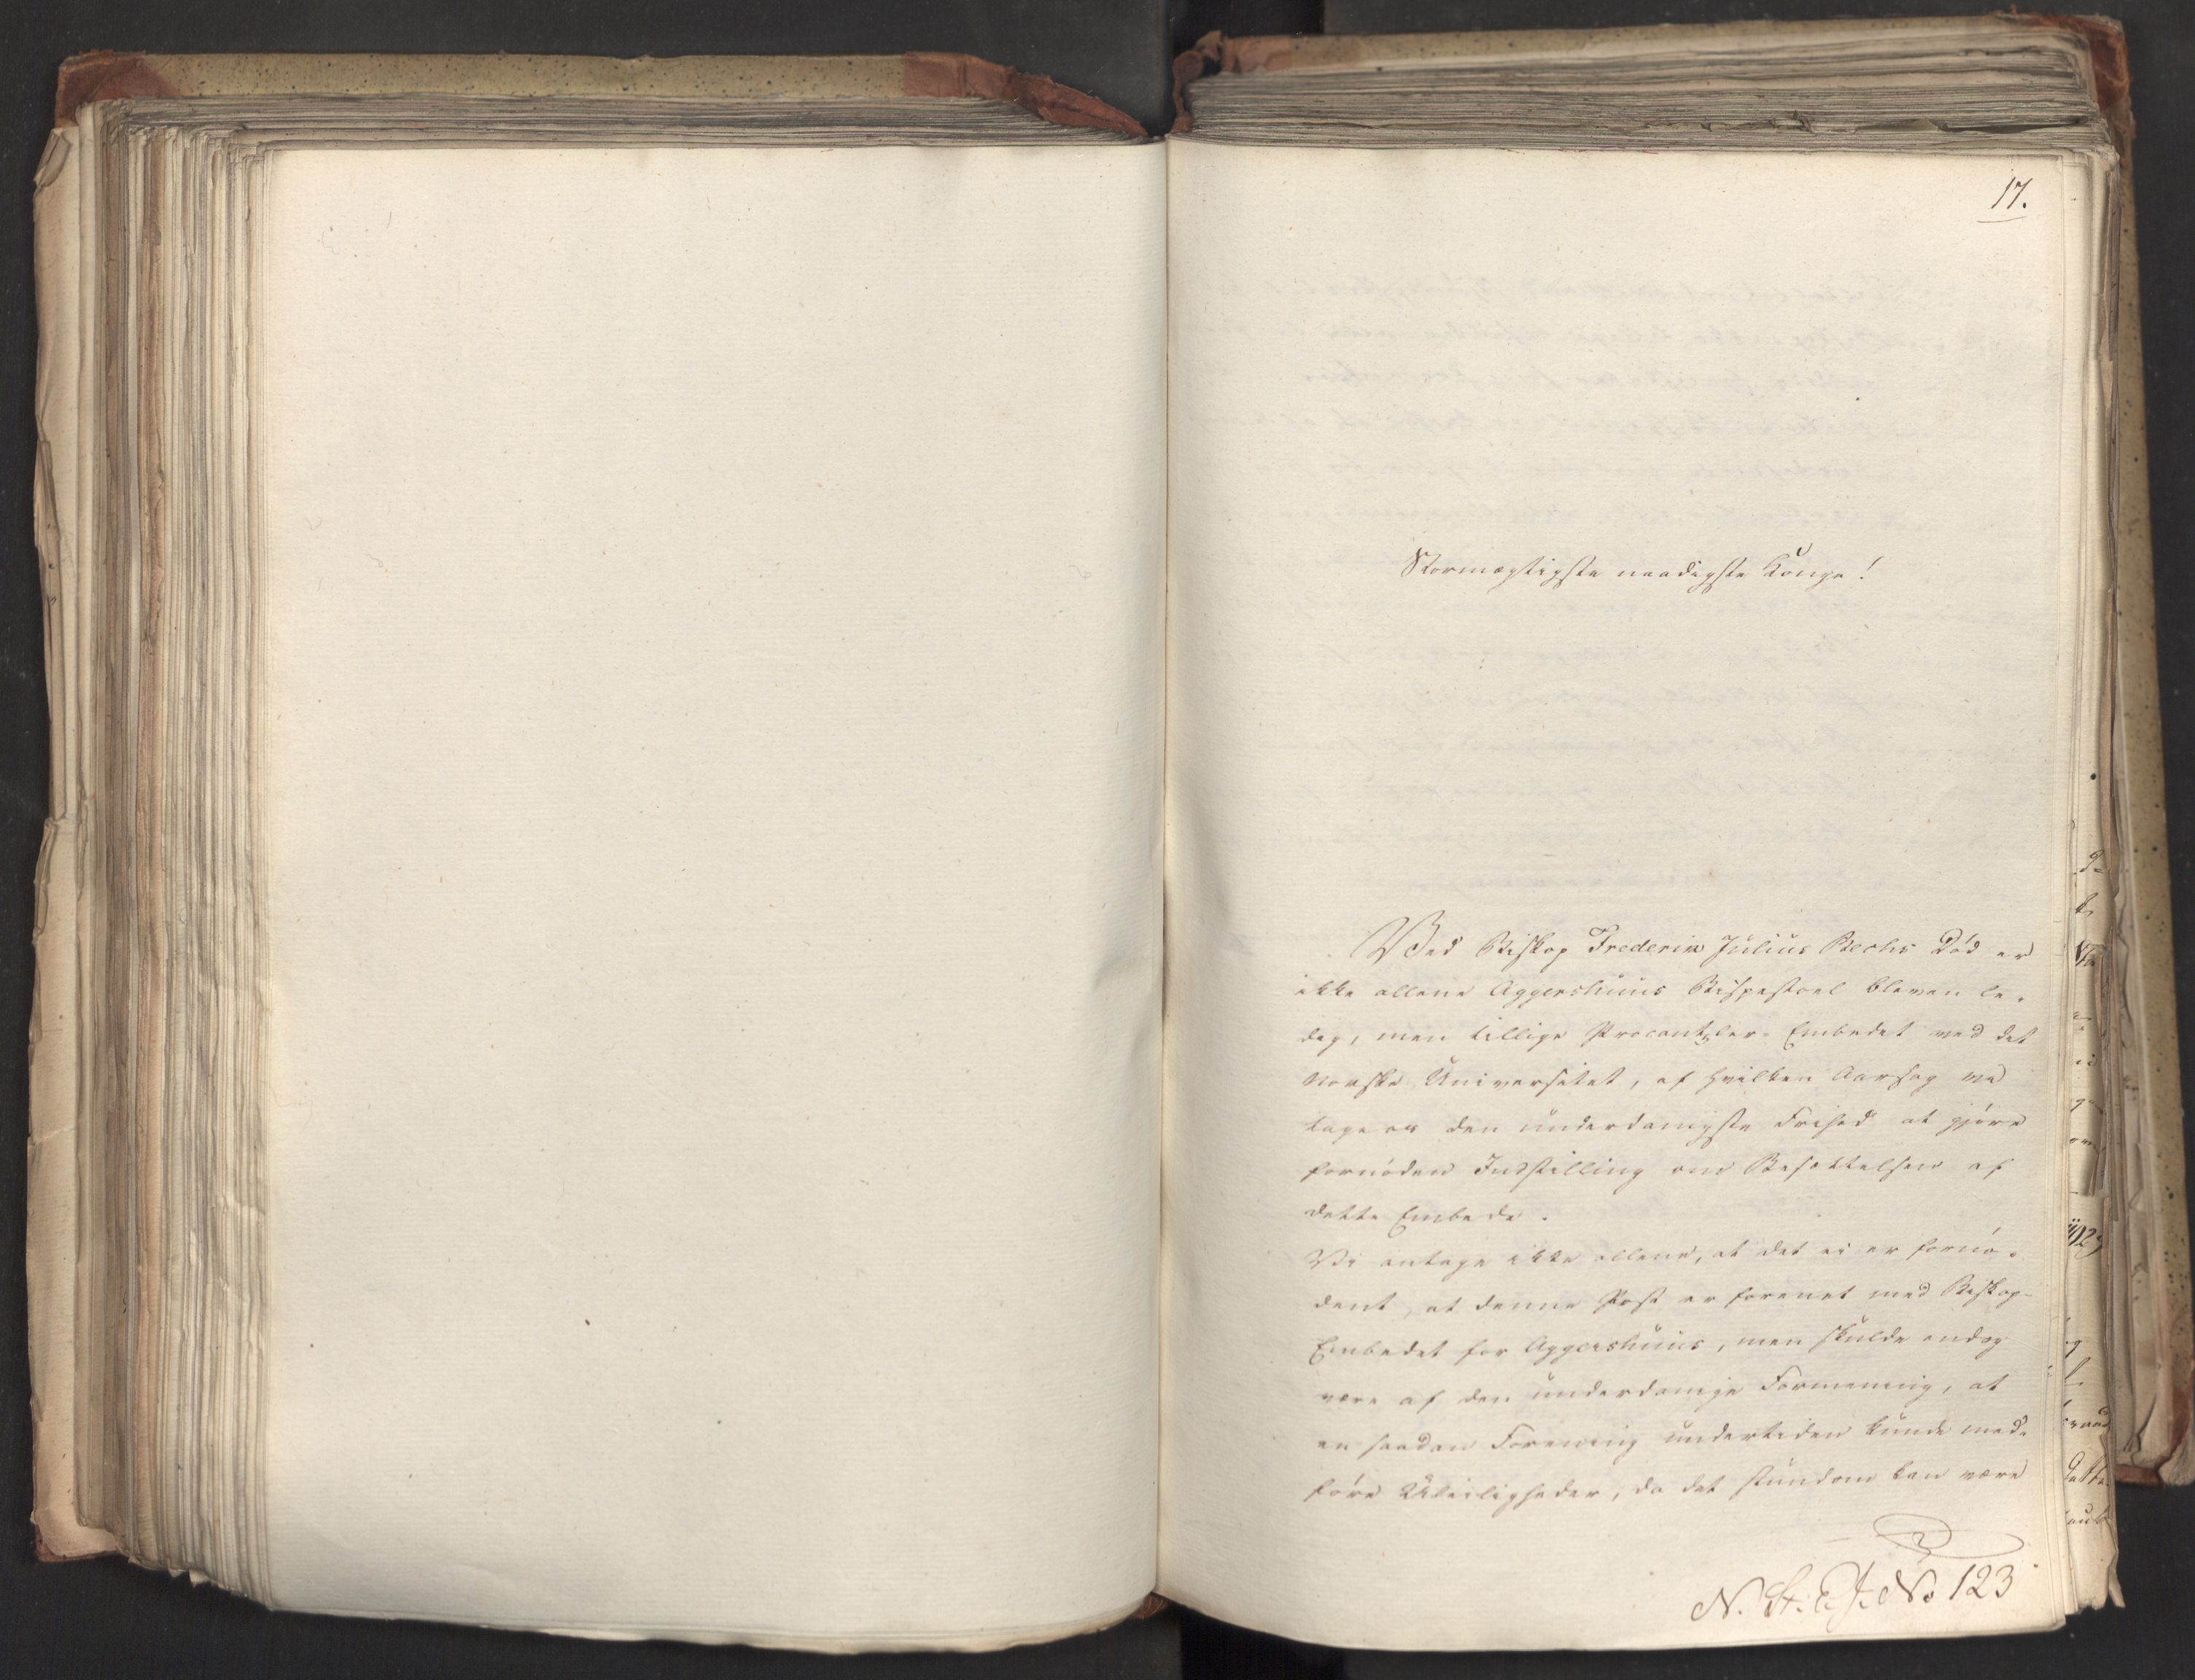 17.
Stormægtigste naadigste Konge!
Ved Biskop Frederik Julius Bechs Død er
ikke allene Aggershuus Bispestoel bleven le-
dig, men tillige Procantzler-Embedet ved det
norske Universitet, af hvilken Aarsag vi
tage os den underdanigste Frihed at gjøre
fornøden Indstilling om Besættelsen af
dette Embede.
Vi antage ikke allene, at det ei er fornø-
dent, at denne Post er forenet med Biskop-
Embedet for Aggershuus, men skulde endog
være af den underdanige Formening, at
en saadan Forening undertiden kunde med-
føre Uleiligheder, da det stundom kan være
N. St. E. J. No 123